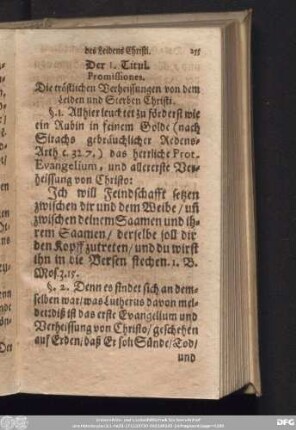 des Leidens Christi. 255
Der 1. Titul.
Promissiones.
Die tröstlichen Verheissungen von dem
Leiden und Sterben Christi.
§. 1. Allhier leuchtet zu förderst wie
ein Rubin in feinem Golde (nach
Sirachs gebräuchlicher Redens-
Arth c. 32. 7.) das herrliche Prot-
Evangelium, und allererste Ver-
heissung von Christo:
Ich will Feindschafft setzen
zwischen dir und dem Weibe / uñ
zwischen deinem Saamen und ih-
rem Saamen / derselbe soll dir
den Kopff zutreten / und du wirst
ihn in die Versen stechen. 1. B.
Mos. 3. 15.
§. 2. Denn es findet sich an dem-
selben war / was Lutherus davon mel-
det: diß ist das erste Evangelium und
Verheissung von Christo / geschehen
auf Erden / daß Er solt Sünde / Tod /
und
DFG